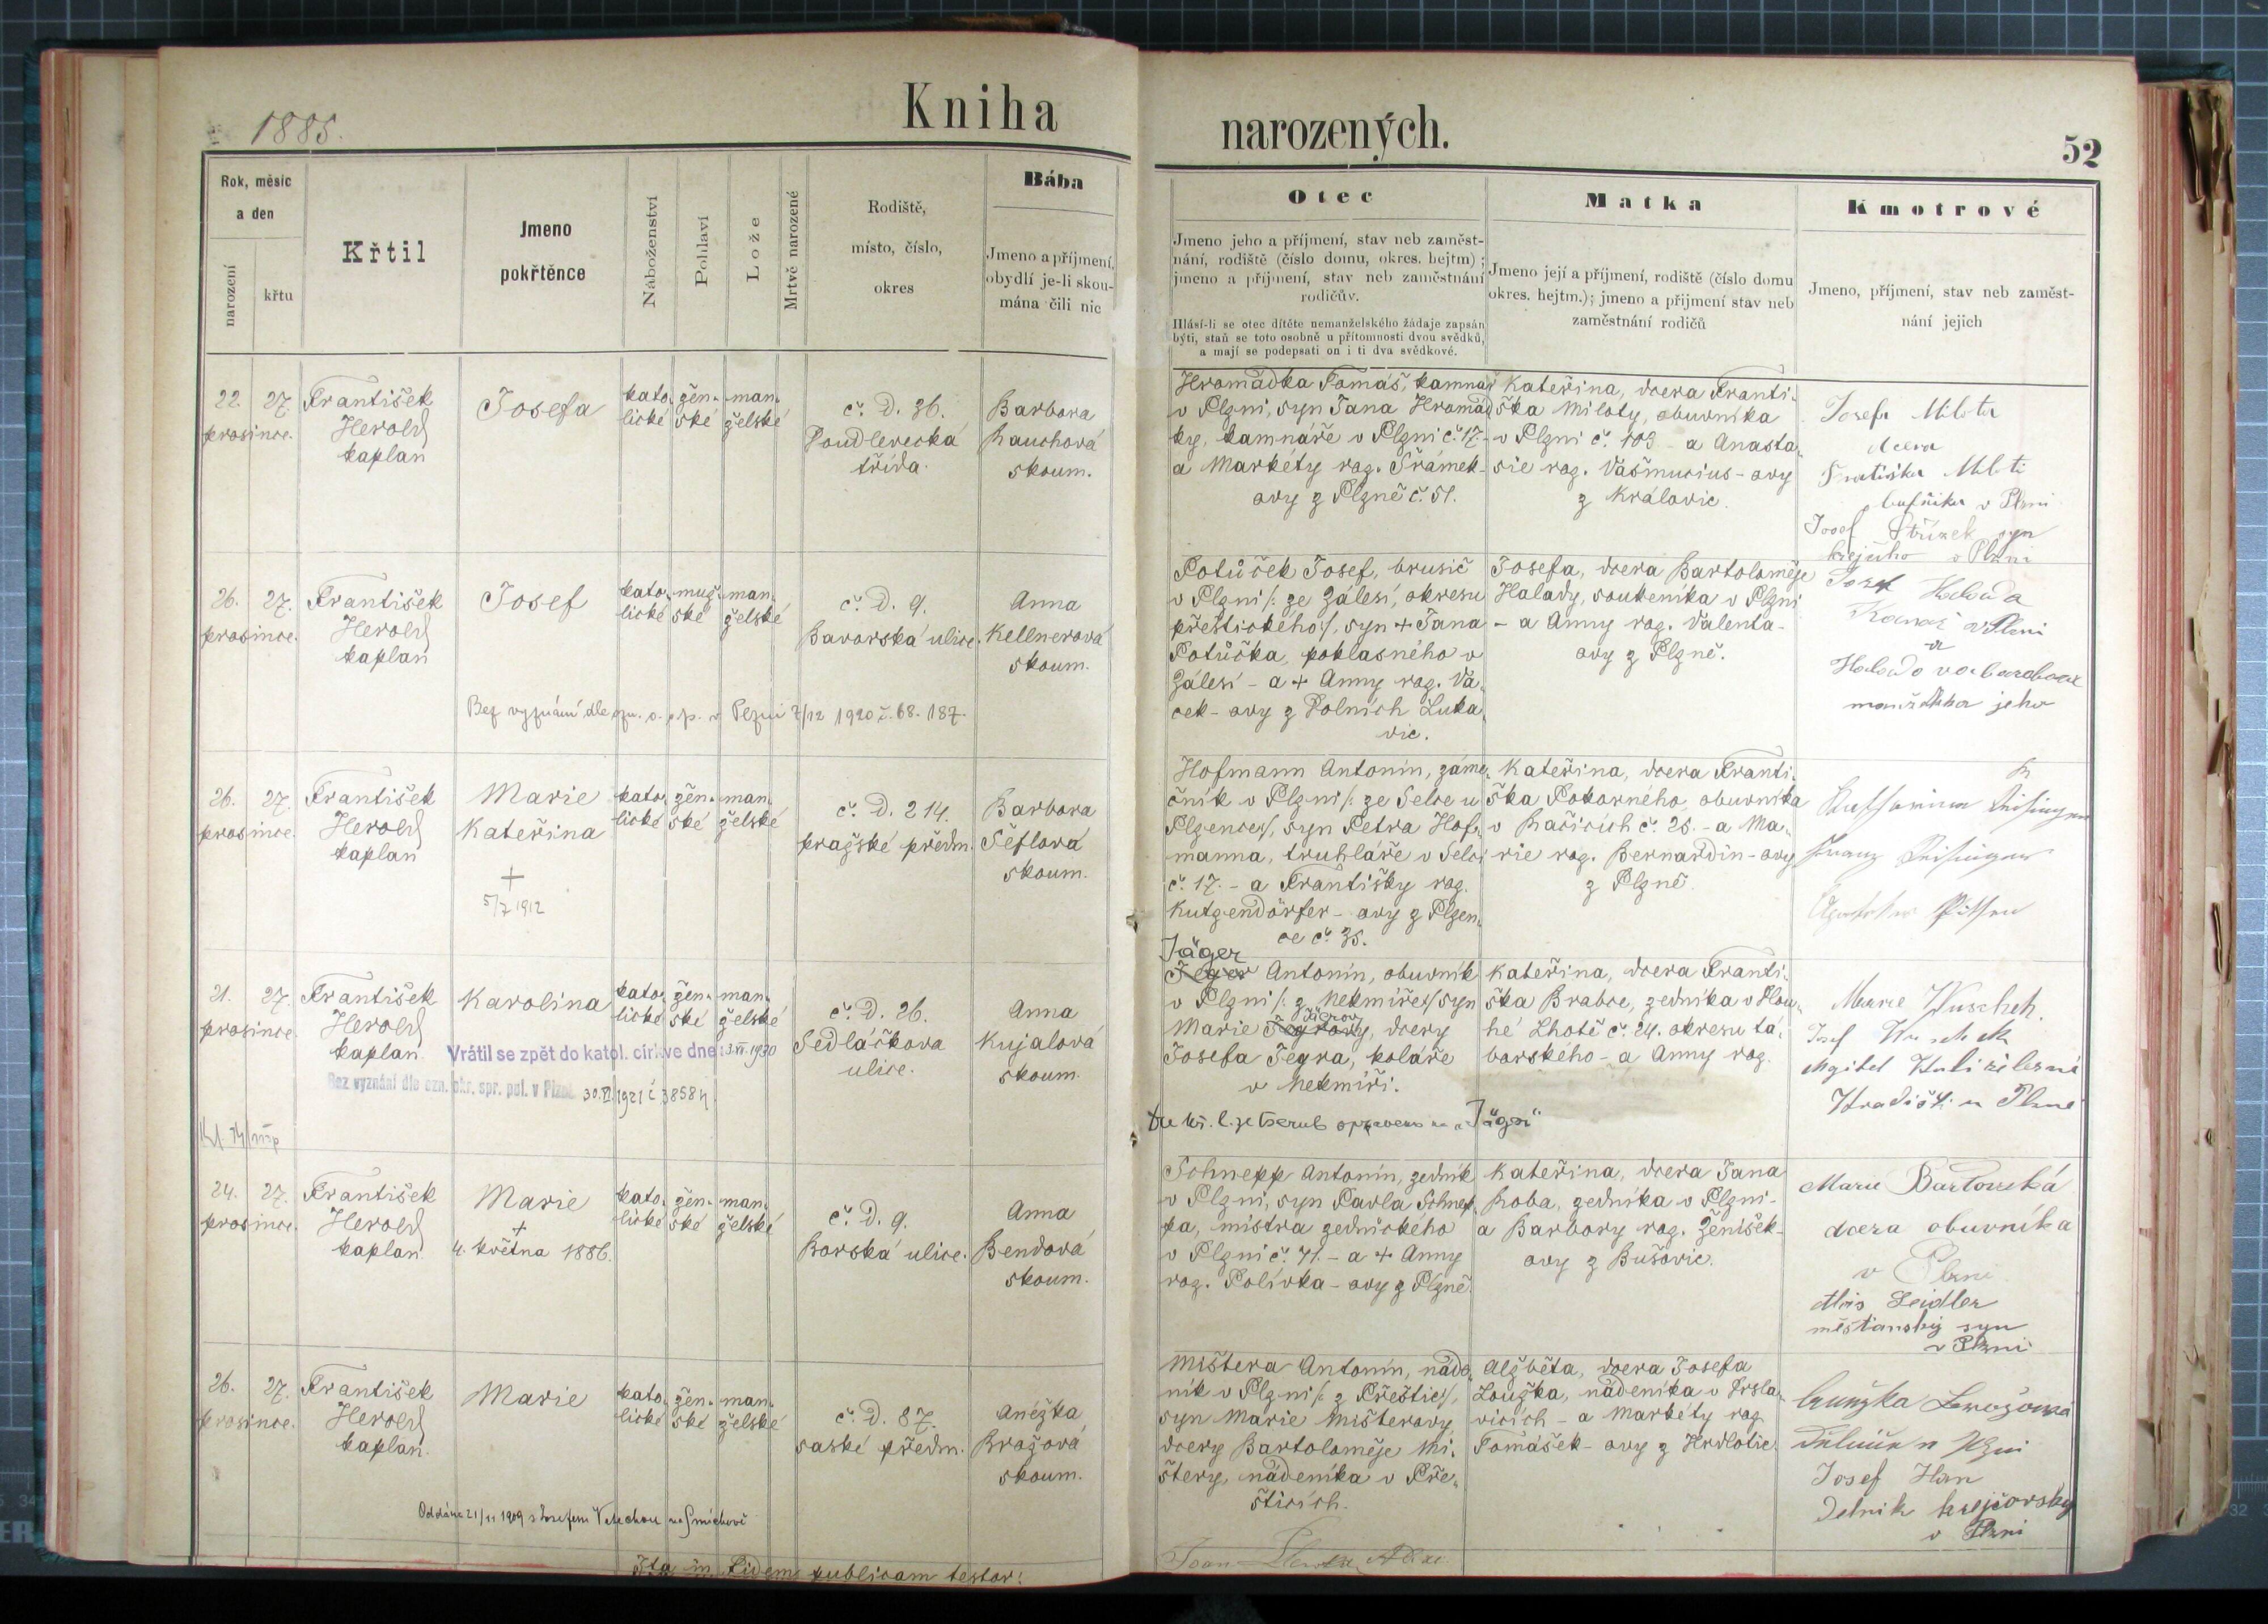 1885.
Kniha
narozených.
52
Rok, měsíc
a den
narození
křtu
Křtil
Jmeno
pokřtěnce
Náboženství
Pohlaví
Lože
Mrtvě narozené
Rodiště,
místo, číslo,
okres
Bába
Jmeno a příjmení,
obydlí je-li skou-
mána čili nic
Otec
Jmeno jeho a příjmení, stav neb zaměst-
nání, rodiště (číslo domu, okres. hejtm) ;
jmeno a příjmení, stav neb zaměstnání
rodičův.
Hlásí-li se otec dítěte nemanželského žádaje zapsán
býti, staň se toto osobně u přítomnosti dvou svědků,
a mají se podepsati on i ti dva svědkové.
Matka
Jmeno její a příjmení, rodiště (číslo domu
okres. hejtm.); jmeno a přijmení stav neb
zaměstnání rodičů
Kmotrové
Jmeno, příjmení, stav neb zaměst-
nání jejich
22. 27.
prosince.
František
Herold
kaplan
Josefa
kato-
lické
žen-
ské
man-
želské
č. D. 36.
Poudlevecká
třída.
Barbora
Rauchová
skoum.
Hromádka Tomáš, kamnář
v Plzni, syn Jana Hromád-
ky, kamnáře v Plzni č. 17.-
a Markéty roz. Šrámek-
ovy z Plzně č. 51.
Kateřina, dcera Franti-
ška Miloty, obuvníka
v Plzni č. 103 - a Anasta-
sie roz. Vašmucius-ovy
z Královic.
Josefa Milota
dcera
v Plzni
Josef Střízek syn
krejčího v Plzni
26. 27.
prosince.
František
Herold
kaplan
Josef
kato-
lické
muž-
ské
man-
želské
č. D. 9.
Bavorská ulice.
Anna
Kellnerová
skoum.
Bez vyznání dle ozn. o. s. p. v Plzni 7/12 1920 č. 68.187.
Potůček Josef, brusič
v Plzni /: ze Zálesí, okresu
přeštického:/, syn + Jana
Potůčka, poklasného v
Zálesí - a + Anny roz. Va-
cek-ovy z Dolních Luka-
vic.
Josefa, dcera Bartoloměje
Halady, soukeníka v Plzni
- a Anny roz. Valenta-
ovy z Plzně.
Josef Halada
v Plzni
a
manželka jeho
26. 27.
prosince.
František
Herold
kaplan
Marie
Kateřina
+
5/7 1912
kato-
lické
žen-
ské
man-
želské
č. D. 214.
pražské předm.
Barbora
Šéflová
skoum.
Hofmann Antonín, záme-
čník v Plzni /: ze Selce u
Plzence:/, syn Petra Hof-
manna, truhláře v Selci
č. 17. - a Františky roz.
Kutzendörfer-ovy z Plzen-
ce č. 35.
Kateřina, dcera Franti-
ška Pokorného, obuvníka
v Račicích č. 25. - a Ma-
rie roz. Bernardin-ovy
z Plzně.
Franz
Pilsen
21. 27.
prosince.
František
Herold
kaplan.
Karolina
kato-
lické
žen-
ské
man-
želské
č. D. 26.
Sedláčkova
ulice.
Anna
Kujalová
skoum.
Vrátil se zpět do katol. církve dne: 3.VI.1930
Bez vyznání dle ozn. okr. spr. pol. v Plzni 30.VI 1921 č 38584
Jäger
Jeger Antonín, obuvník
v Plzni /: z Nekmíře:/ syn
Marie Jegrovy, dcery
Josefa Jegra, koláře
v Nekmíři.
Kateřina, dcera Franti-
ška Brabce, zedníka v Dlou-
hé Lhotě č. 24. okresu tá-
borského - a Anny roz.
Marie Wuschek.
Josef Wuschek
Hradišti u Plzně
24. 27.
prosince.
František
Herold
kaplan.
Marie
+
4. května 1886.
kato-
lické
žen-
ské
man-
želské
č. D. 9.
Borská ulice.
Anna
Bendová
skoum.
Schnepp Antonín, zedník
v Plzni, syn Pavla Schnep-
pa, mistra zednického
v Plzni č. 71. - a + Anny
roz. Polívka-ovy z Plzně.
Kateřina, dcera Jana
Roba, zedníka v Plzni -
a Barbory roz. Ženíšek-
ovy z Bušovic.
Marie Bartovská
dcera obuvníka
v Plzni
Alois Seidler
měšťanský syn
v Plzni
26. 27.
prosince.
František
Herold
kaplan.
Marie
kato-
lické
žen-
ské
man-
želské
č. D. 87.
saské předm.
Anežka
Bražová
skoum.
Oddána 21/11 1909 s Josefem Vaňechou na Smíchově
Mištera Antonín, náde-
ník v Plzni /: z Přeštic:/,
syn Marie Mišterovy,
dcery Bartoloměje Mi-
štery, nádeníka v Pře-
šticích.
Alžběta, dcera Josefa
Loužka, nádeníka v Vrsla-
vicích - a Markéty roz.
Tomášek-ovy z Hrdlotic.
Josef Han
Dělník krejčovský
v Plzni
Ita in fidem publicam testor: